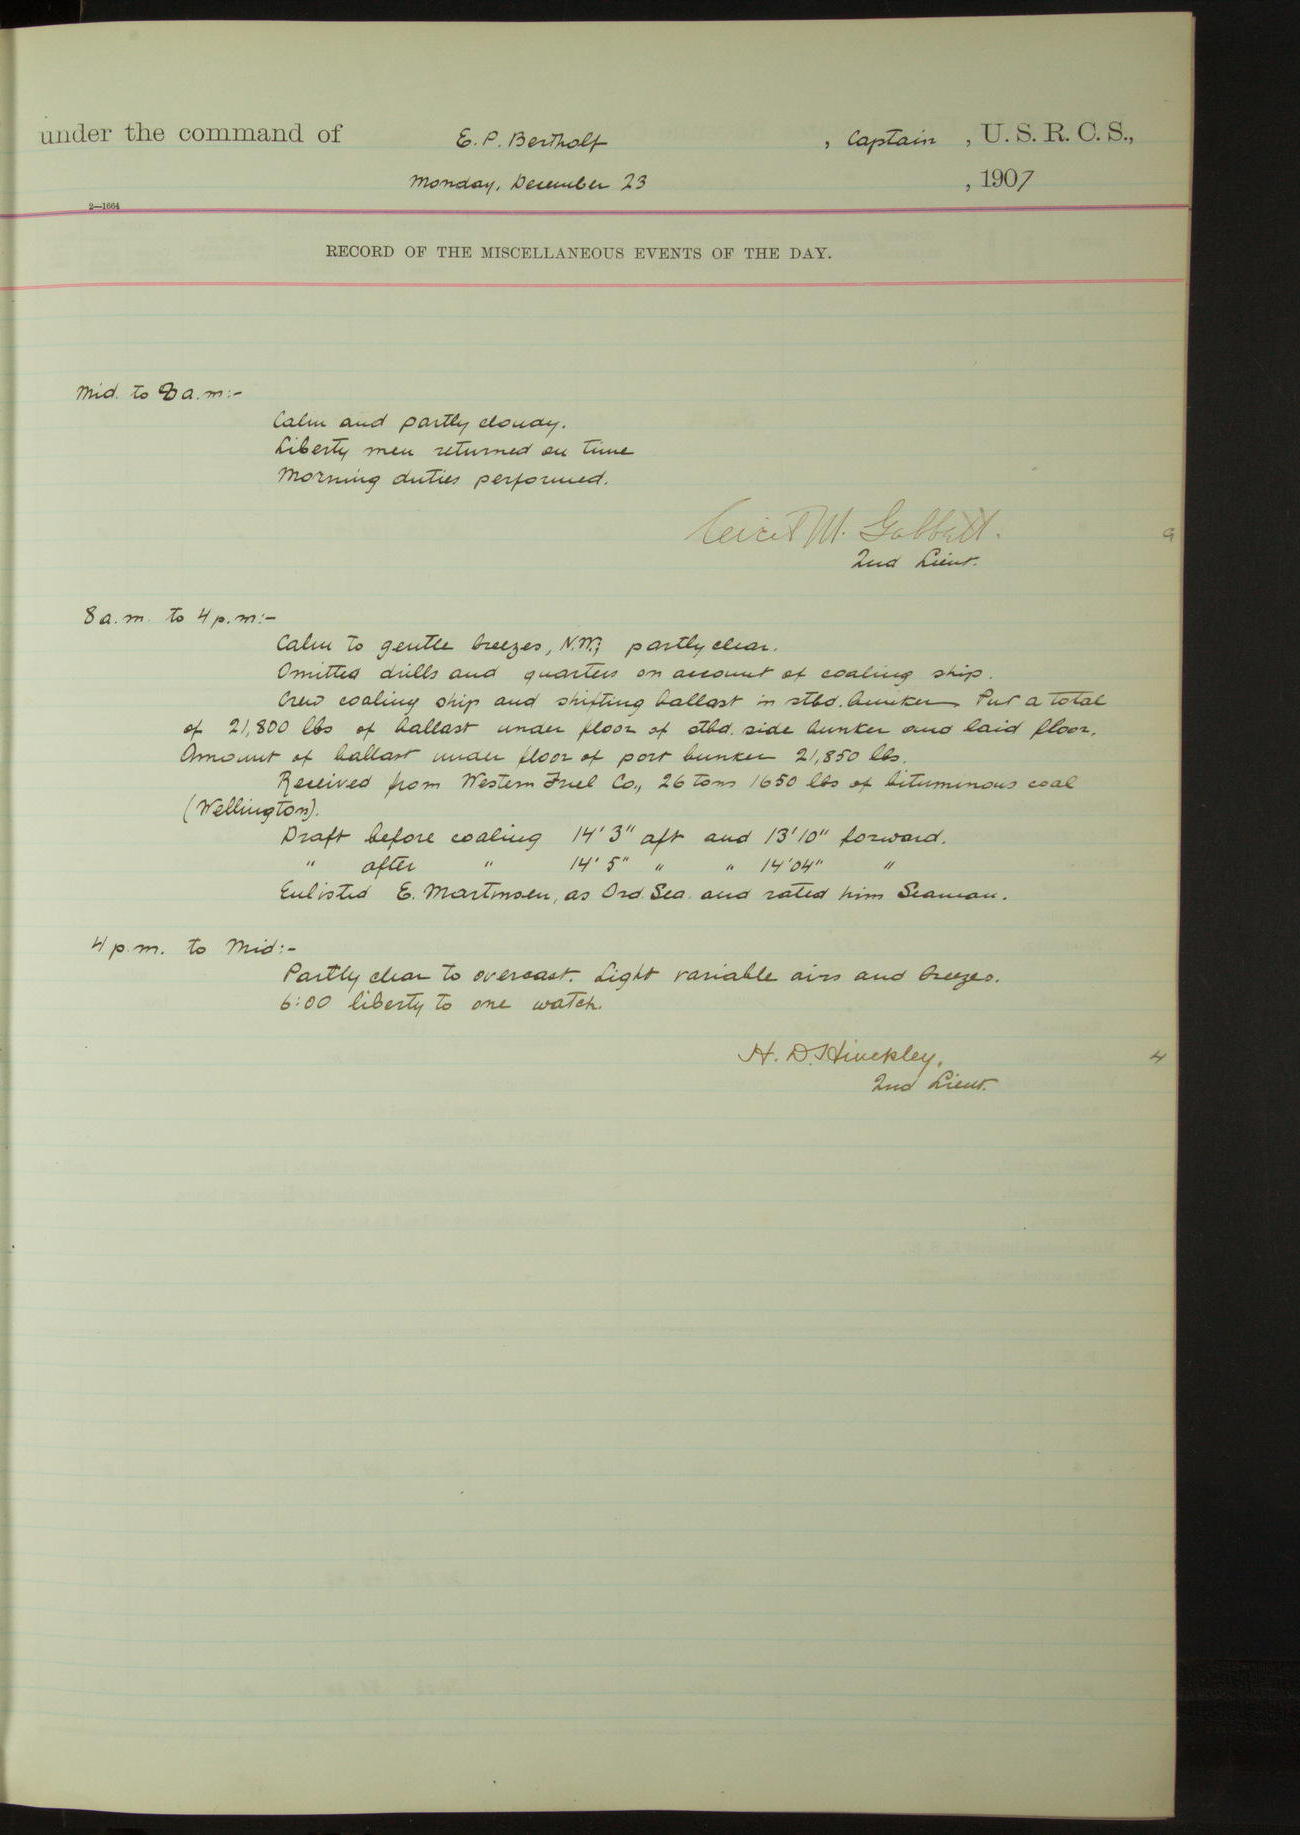 under the command of E. P. Bertholf, Captain, U. S. R. C. S.,
Monday, December 23, 1907
2—1664
RECORD OF THE MISCELLANEOUS EVENTS OF THE DAY.
Mid. to 8 a.m:-
Calm and partly cloudy.
Liberty men returned on time
Morning duties performed.
M. Gabbett.
2nd Lieut.
8 a.m. to 4 p.m:-
Calm to gentle breezes, N.W; partly clear.
Omitted drills and quarters on account of coaling ship.
Crew coaling ship and shifting ballast in stbd. bunker Put a total
of 21,800 lbs of ballast under floor of stbd. side bunker and laid floor.
Amount of ballast under floor of port bunker 21,850 lbs.
Received from Western Fuel Co., 26 tons 1650 lbs of bituminous coal
(Wellington).
Draft before coaling 14' 3" aft and 13' 10" forward.
" after " 14' 5" " " 14' 04" "
Enlisted E. Martinsen, as Ord. Sea. and rated him Seaman.
4 p.m. to Mid:-
Partly clear to overcast. Light variable airs and breezes.
6:00 liberty to one watch.
H. D. Hinckley.
2nd Lieut.
4